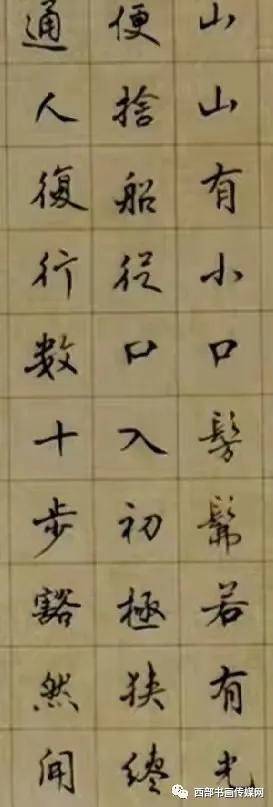 山山有小口髣髴若有光
便捨船從口入初極狹纔
通人復行數十步豁然開
西部书画传媒网